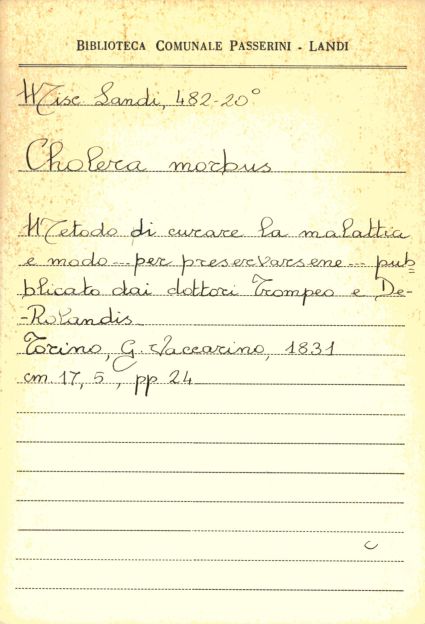 BIBLIOTECA COMUNALE PASSERINI - LANDI
Misc Landi, 482-20°
Cholera morbus
Metodo di curare la malattia
e modo ... per preservarsene ... pub=
plicato dai dottori Trompeo e De-
-Rolandis
Torino, G. Vaccarino, 1831
cm. 17,5, pp 24
c